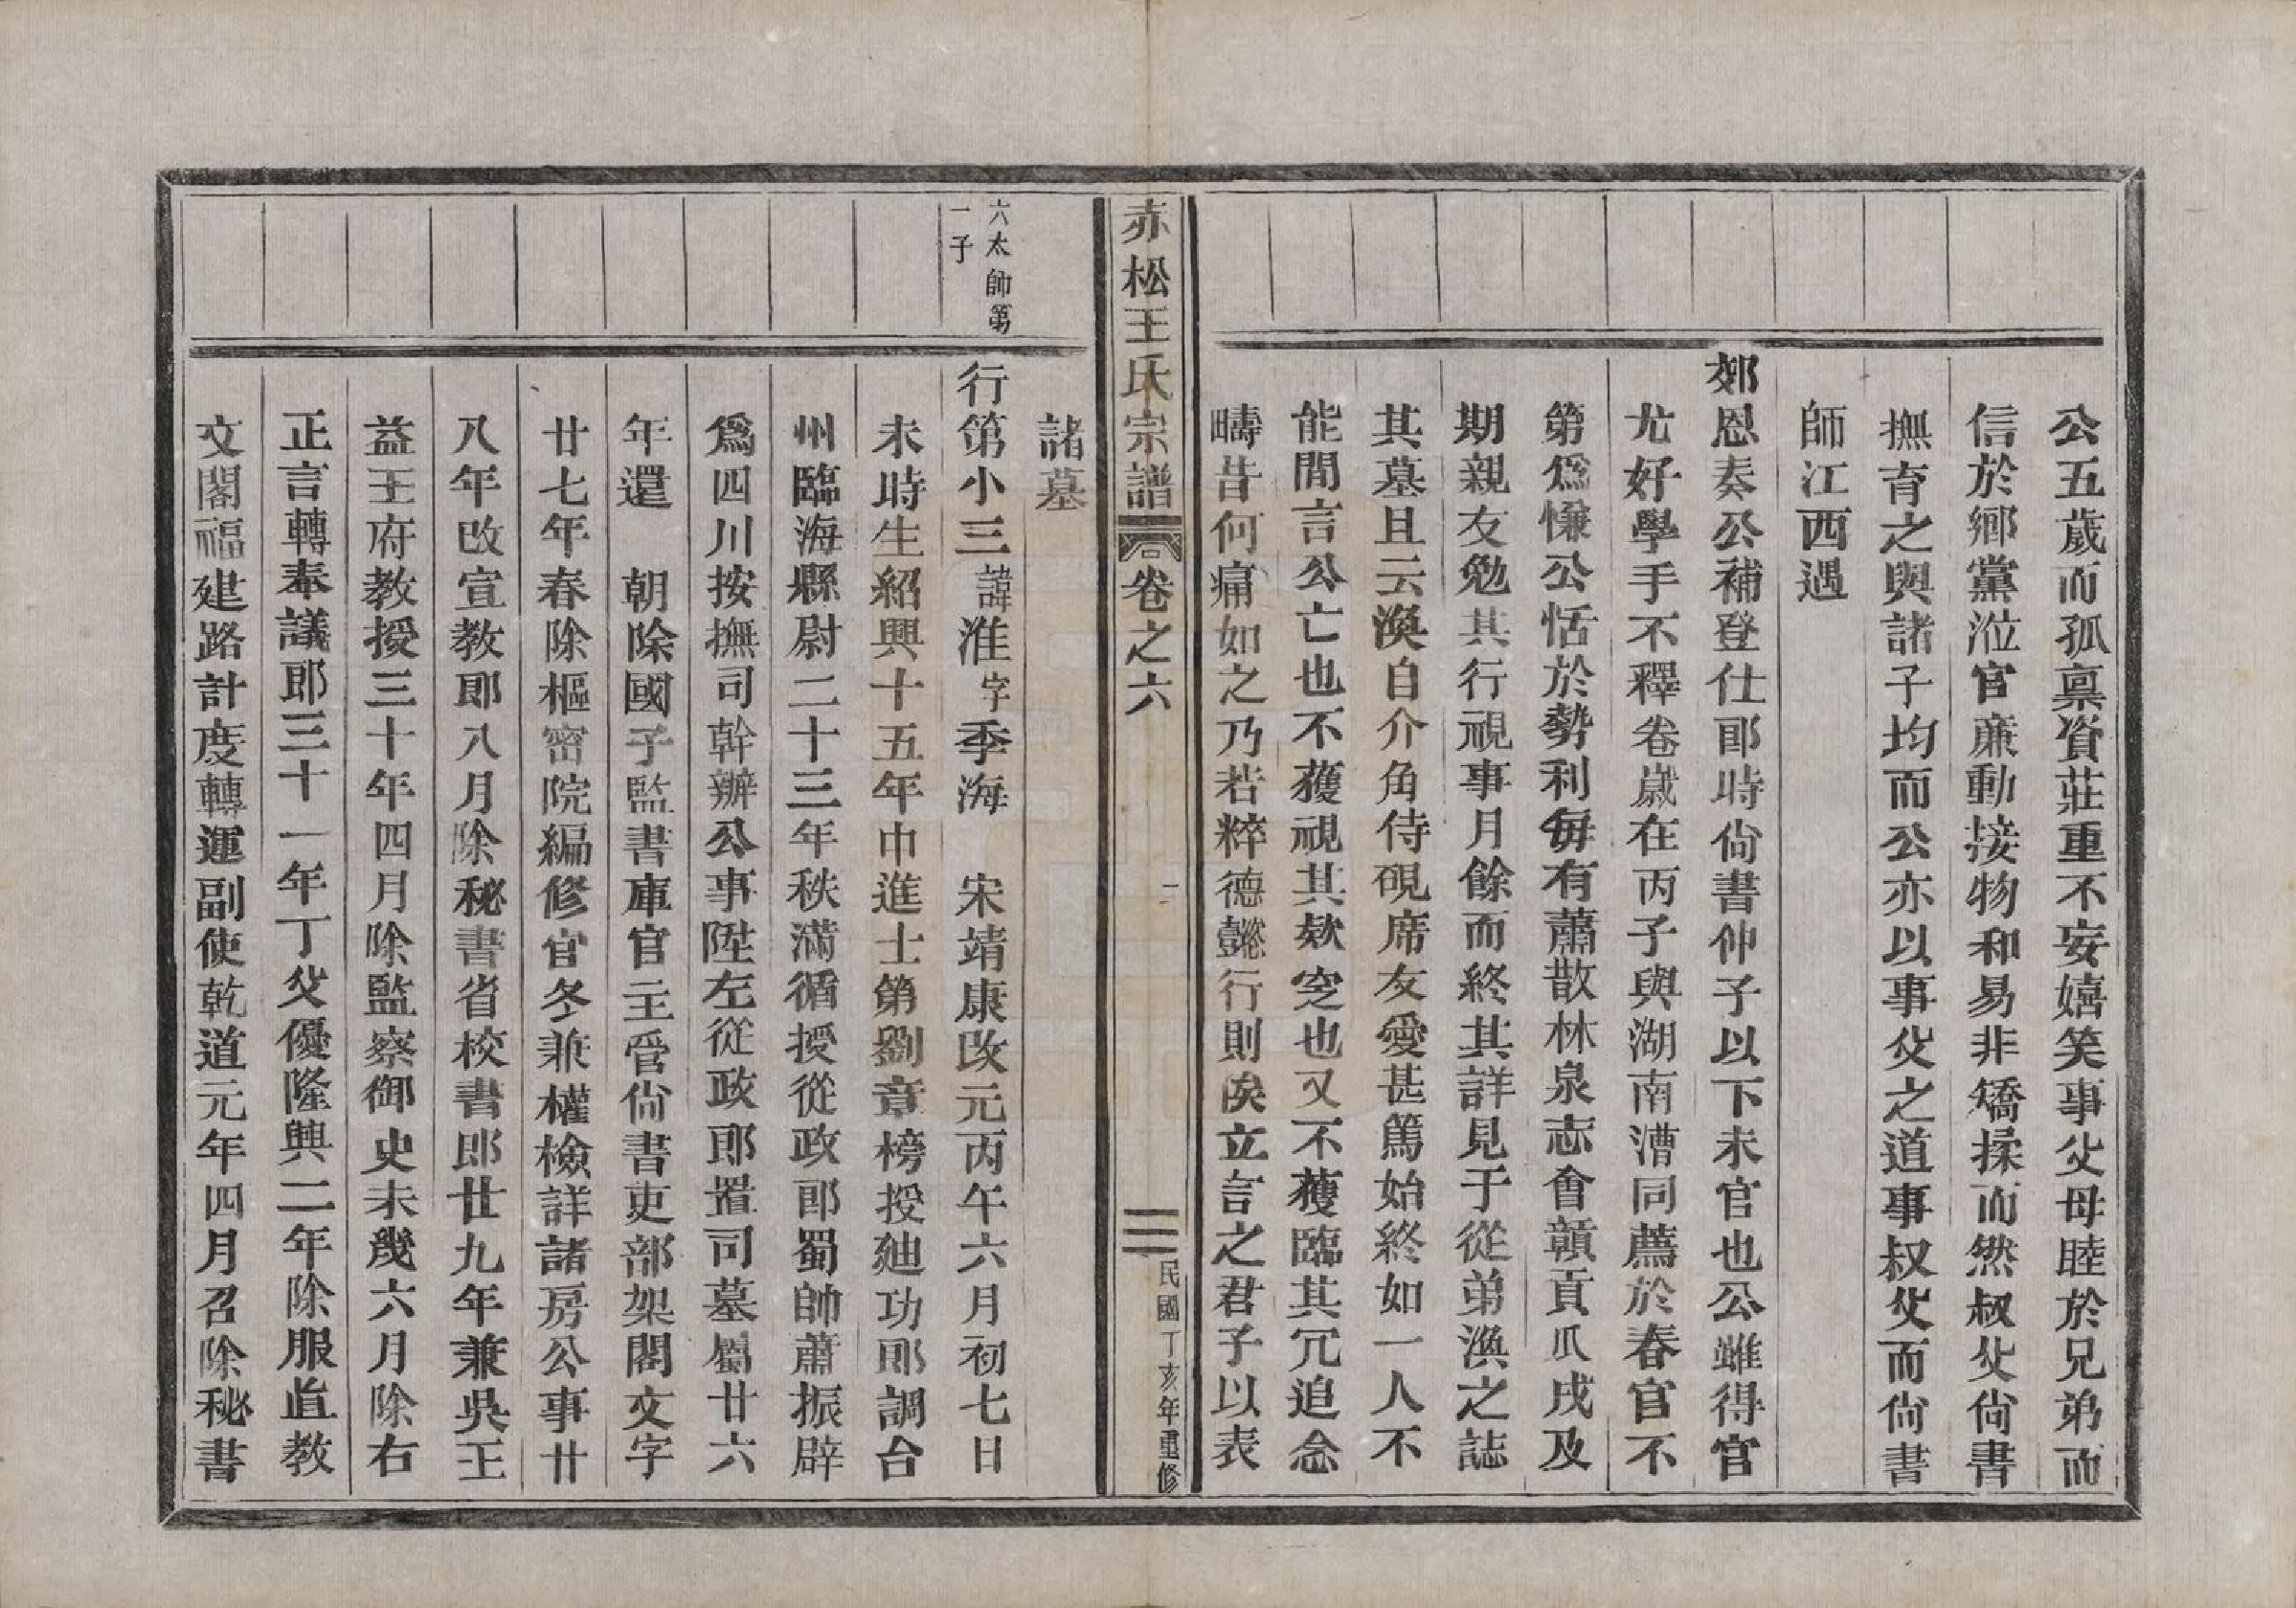 公五歲而孤稟資莊重不妄嬉笑事父母睦於兄弟而
信於鄉黨涖官廉勤接物和易非矯揉而然叔父尙書
撫育之與諸子均而公亦以事父之道事叔父而尙書
師江西遇
郊恩奏公補登仕郎時尙書仲子以下未官也公雖得官
尤好學手不釋卷嵗在丙子與湖南漕同薦於春官不
第爲慊公恬於勢利每有蕭散林泉志會贛貢瓜戌及
期親友勉其行視事月餘而終其詳見于從弟渙之誌
其墓且云渙自介角侍硯席友愛甚篤始終如一人不
能閒言公亡也不獲視其欵窆也又不獲臨其冗追念
疇昔何痛如之乃若粹德懿行則俟立言之君子以表
赤松王氏宗譜
卷之六
二
三
民國丁亥年重修
諸墓
六太師第
一子
行第小三諱淮字季海 宋靖康改元丙午六月初七日
未時生紹興十五年中進士第劉章榜授廸功郎調台
州臨海縣尉二十三年秩滿循授從政郎蜀帥蕭振辟
爲四川按撫司幹辦公事陞左從政郎置司墓屬廿六
年還 朝除國子監書庫官主管尙書吏部架閣文字
廿七年春除樞密院編修官冬兼權檢詳諸房公事廿
八年改宣教郎八月除秘書省校書郎廿九年兼吳王
益王府教授三十年四月除監察御史未幾六月除右
正言轉奉議郎三十一年丁父優隆興二年除服直敎
文閣福建路計度轉運副使乾道元年四月召除秘書